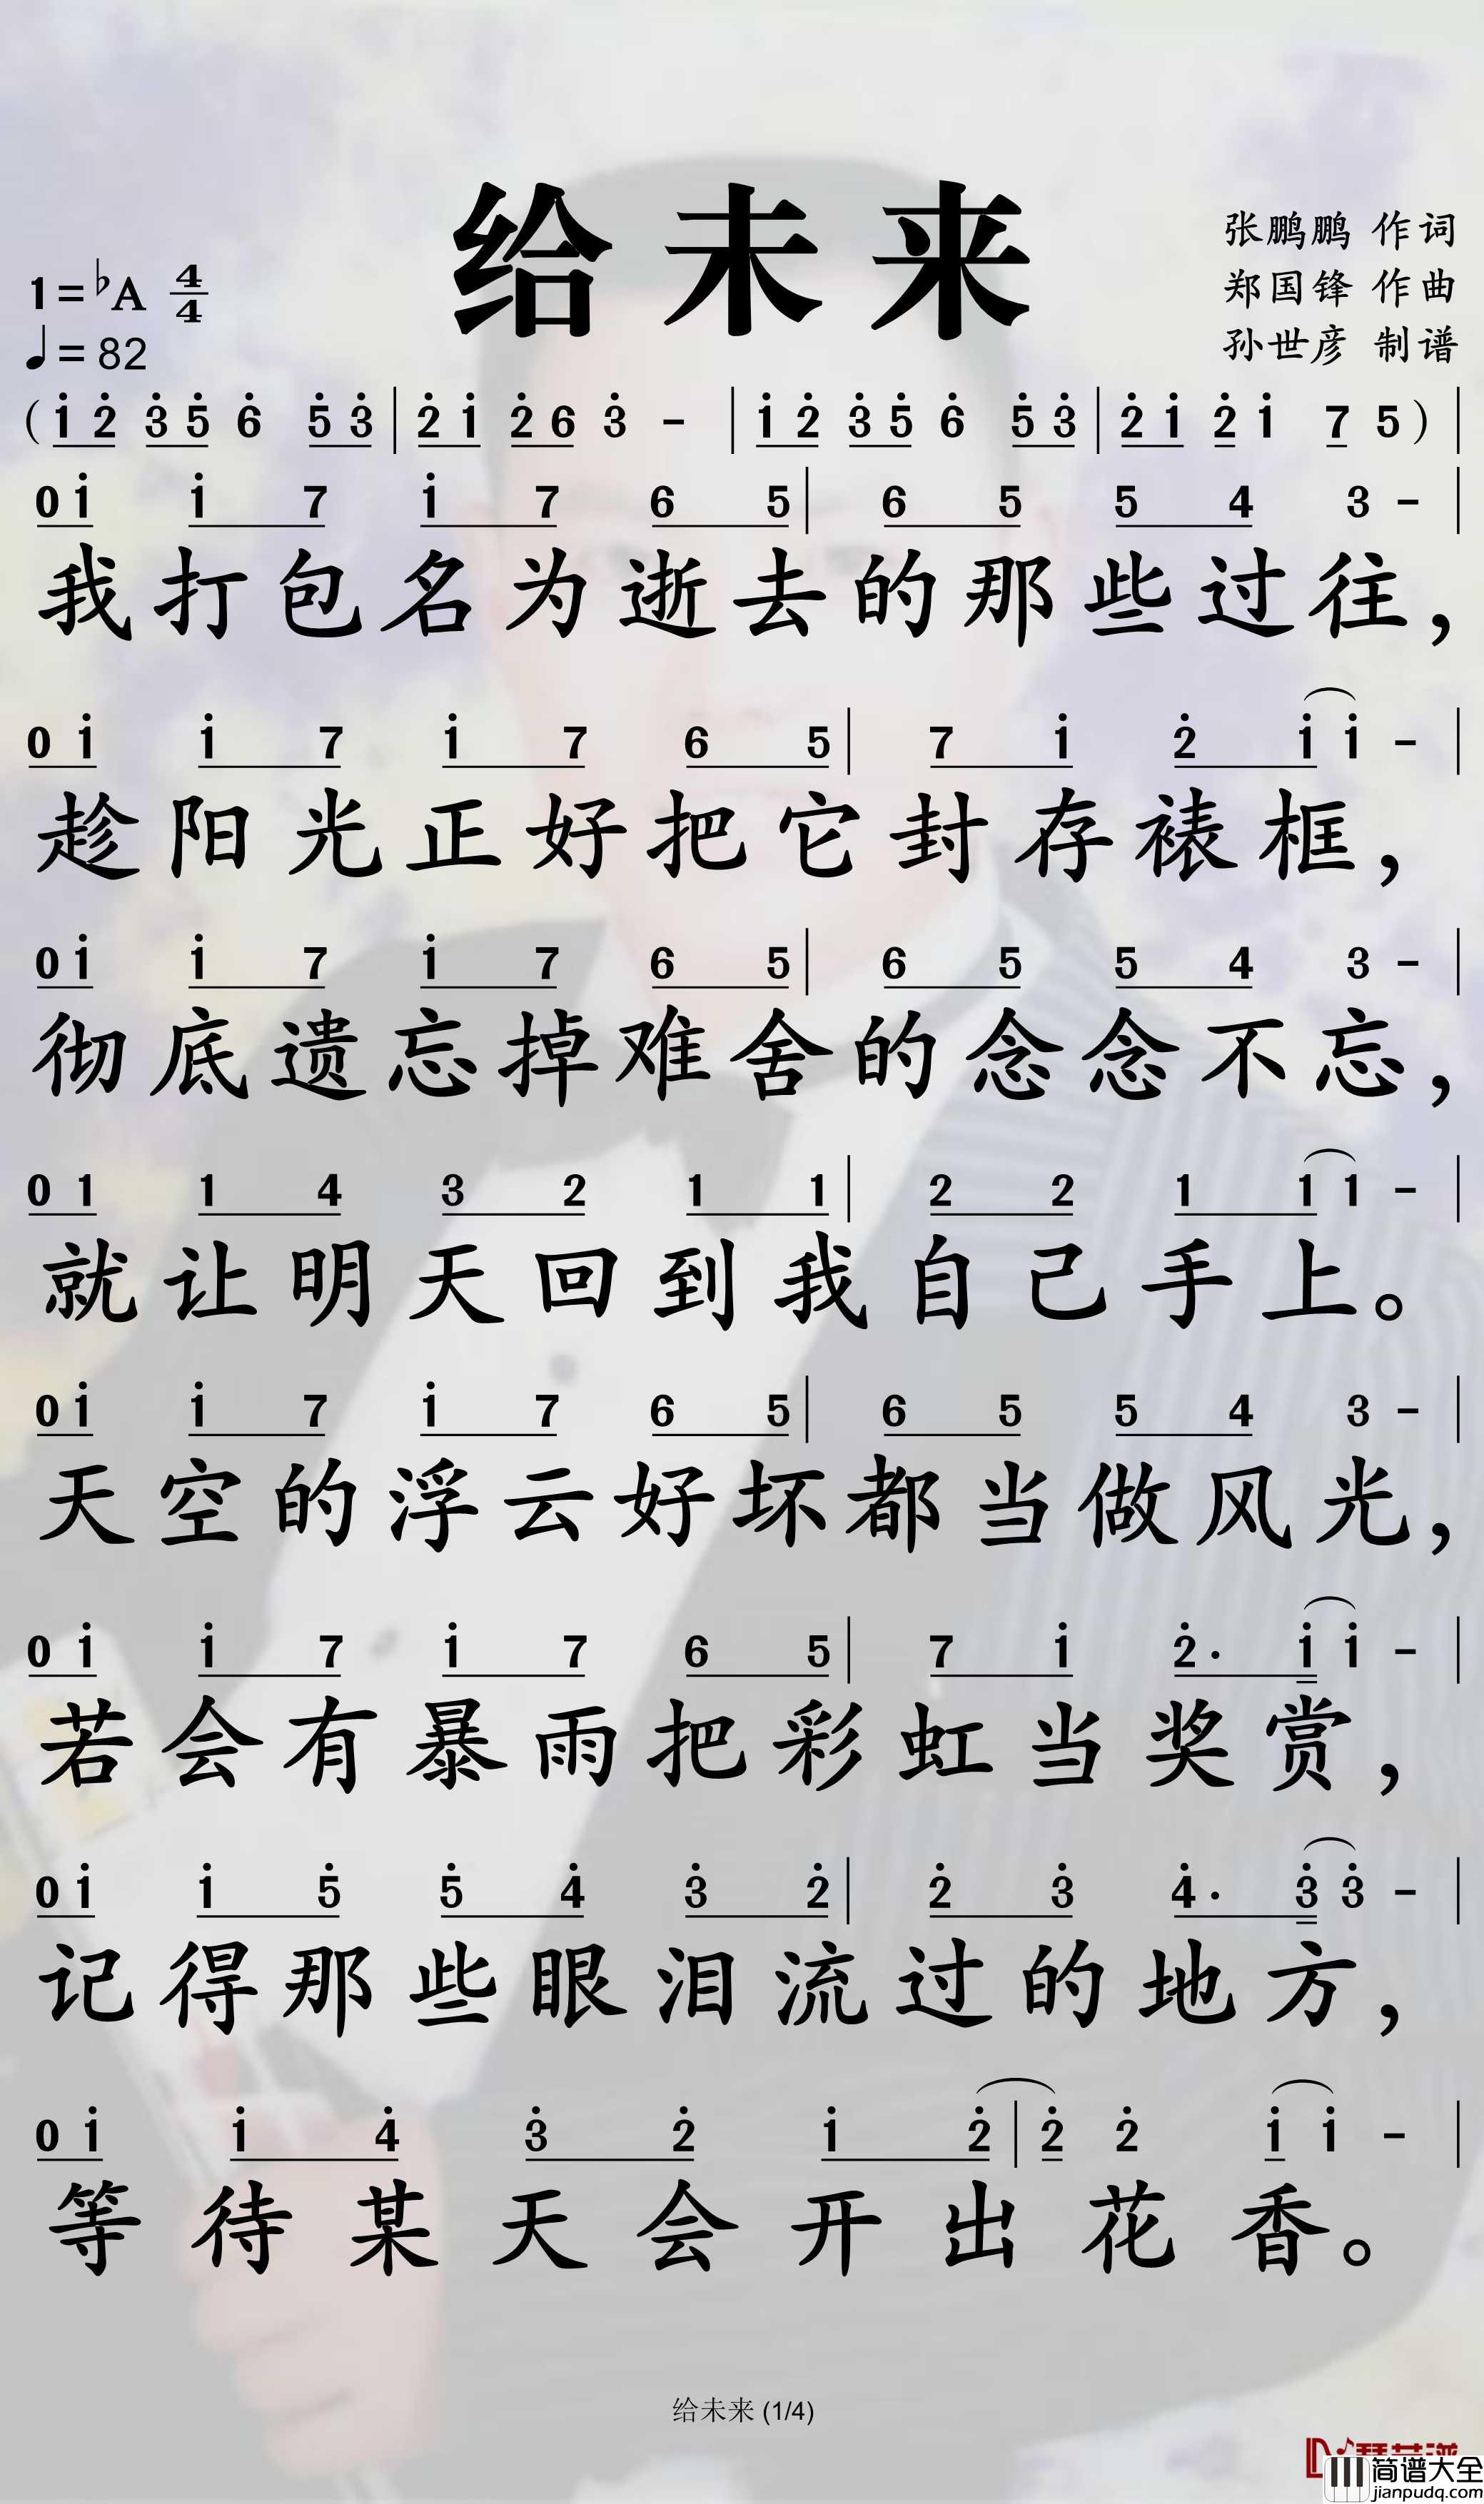 给未来
张鹏鹏 作词
1=♭A 4/4
郑国锋 作曲
♩=82
孙世彦 制谱
(i̇ 2̇ 3̇ 5̇ 6̇ 5̇ 3̇ | 2̇ i̇ 2̇ 6 3̇ - | i̇ 2̇ 3̇ 5̇ 6̇ 5̇ 3̇ | 2̇ i̇ 2̇ i̇ 7 5) |
0 i̇ i̇ 7 i̇ 7 6 5 | 6 5 5 4 3 - |
我打包名为逝去的那些过往，
0 i̇ i̇ 7 i̇ 7 6 5 | 7 i̇ 2̇ i̇ i̇ - |
趁阳光正好把它封存裱框，
0 i̇ i̇ 7 i̇ 7 6 5 | 6 5 5 4 3 - |
彻底遗忘掉难舍的念念不忘，
0 1 1 4 3 2 1 1 | 2 2 1 1 1 - |
就让明天回到我自己手上。
0 i̇ i̇ 7 i̇ 7 6 5 | 6 5 5 4 3 - |
天空的浮云好坏都当做风光，
0 i̇ i̇ 7 i̇ 7 6 5 | 7 i̇ 2̇· i̇ i̇ - |
若会有暴雨把彩虹当奖赏，
0 i̇ i̇ 5̇ 5̇ 4̇ 3̇ 2̇ | 2̇ 3̇ 4̇· 3̇ 3̇ - |
记得那些眼泪流过的地方，
0 i̇ i̇ 4̇ 3̇ 2̇ i̇ 2̇ | 2̇ 2̇ i̇ i̇ - |
等待某天会开出花香。
给未来 (1/4)
简谱大全
jianpudq.com